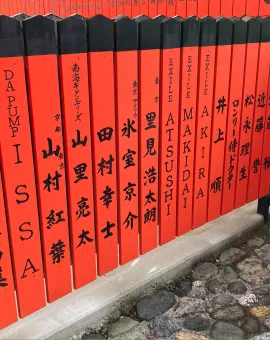 DA PUMP ISSA
京都 山村紅葉
南海キャンディーズ 山里亮太
東京 田村幸士
氷室京介
里見浩太朗
EXILE ATSUSHI
EXILE MAKIDAI
EXILE AKIRA
井上順
ロンリー侍ドクター
松永理生
近藤誉